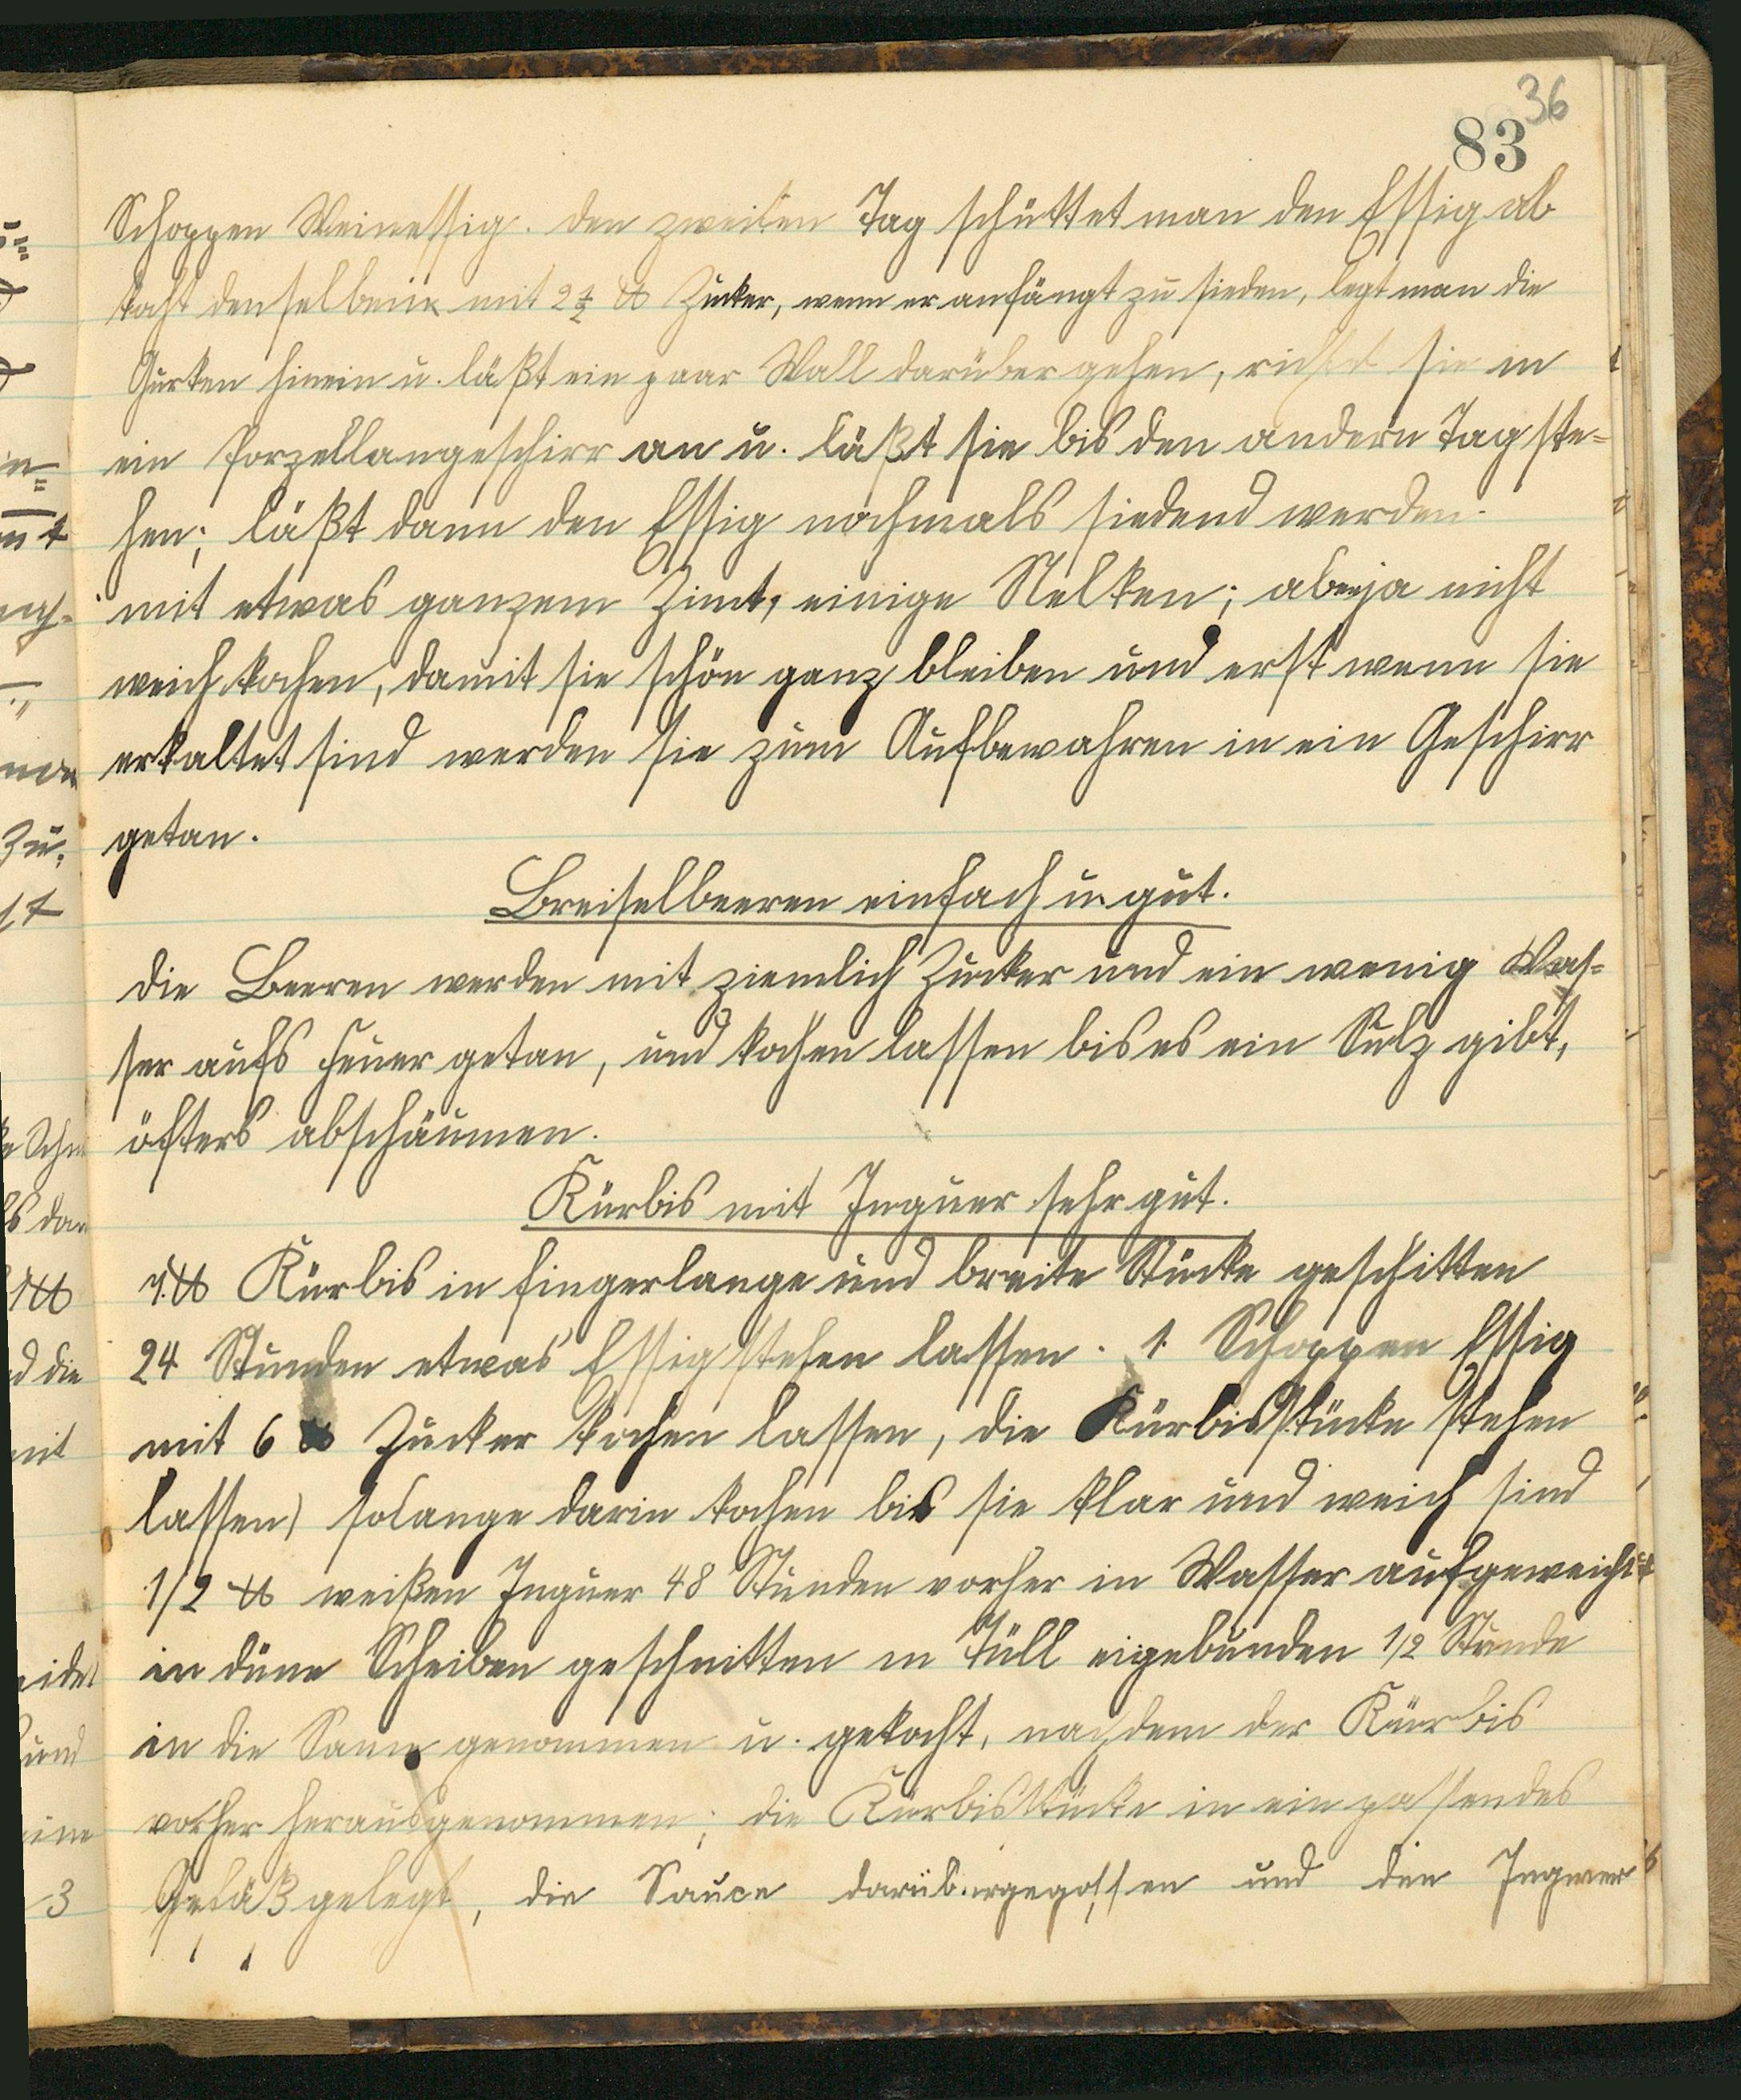 36
83
Schoppen Weinessig. Den zweiten Tag schüttet man den Essig ab
kocht denselben mit 2 1/2 ℔ Zucker, wenn er anfängt zu sieden, legt man die
Gurken hinein u. läßt ein paar Wall darüber gehen, richtet sie in
ein Porzellangeschirr an u. läßt sie bis den andern Tag ste=
hen; läßt dann den Essig nochmals siedend werden.
mit etwas ganzem Zimt, einige Nelken; aber ja nicht
weich kochen, damit sie schön ganz bleiben und erst wenn sie
erkaltet sind werden sie zum Aufbewahren in ein Geschirr
getan.
Breiselbeeren einfach u. gut.
Die Beeren werden mit ziemlich Zucker und ein wenig Was=
ser aufs Feuer getan, und kochen lassen bis es ein Sulz gibt,
öfters abschäumen.
Kürbis mit Inguer sehr gut.
7 ℔ Kürbis in fingerlange und breite Stücke geschitten
24 Stunden etwas Essig stehen lassen. 1 Schoppen Essig
mit 6 ℔ Zucker kochen lassen, die Kürbisstücke stehen
lassen) solange darin kochen bis sie klar und weich sind
1/2 ℔ weißen Inguer 48 Stunden vorher in Wasser aufgeweicht
in düne Scheiben geschnitten in Tüll eigebunden 1/2 Stunde
in die genommen u. gekocht, nachdem der Kürbis
vorher herausgenommen; die Kürbisstücke in ein passendes
Gefäß gelegt, die Sauce darübergegossen und den Ingwer